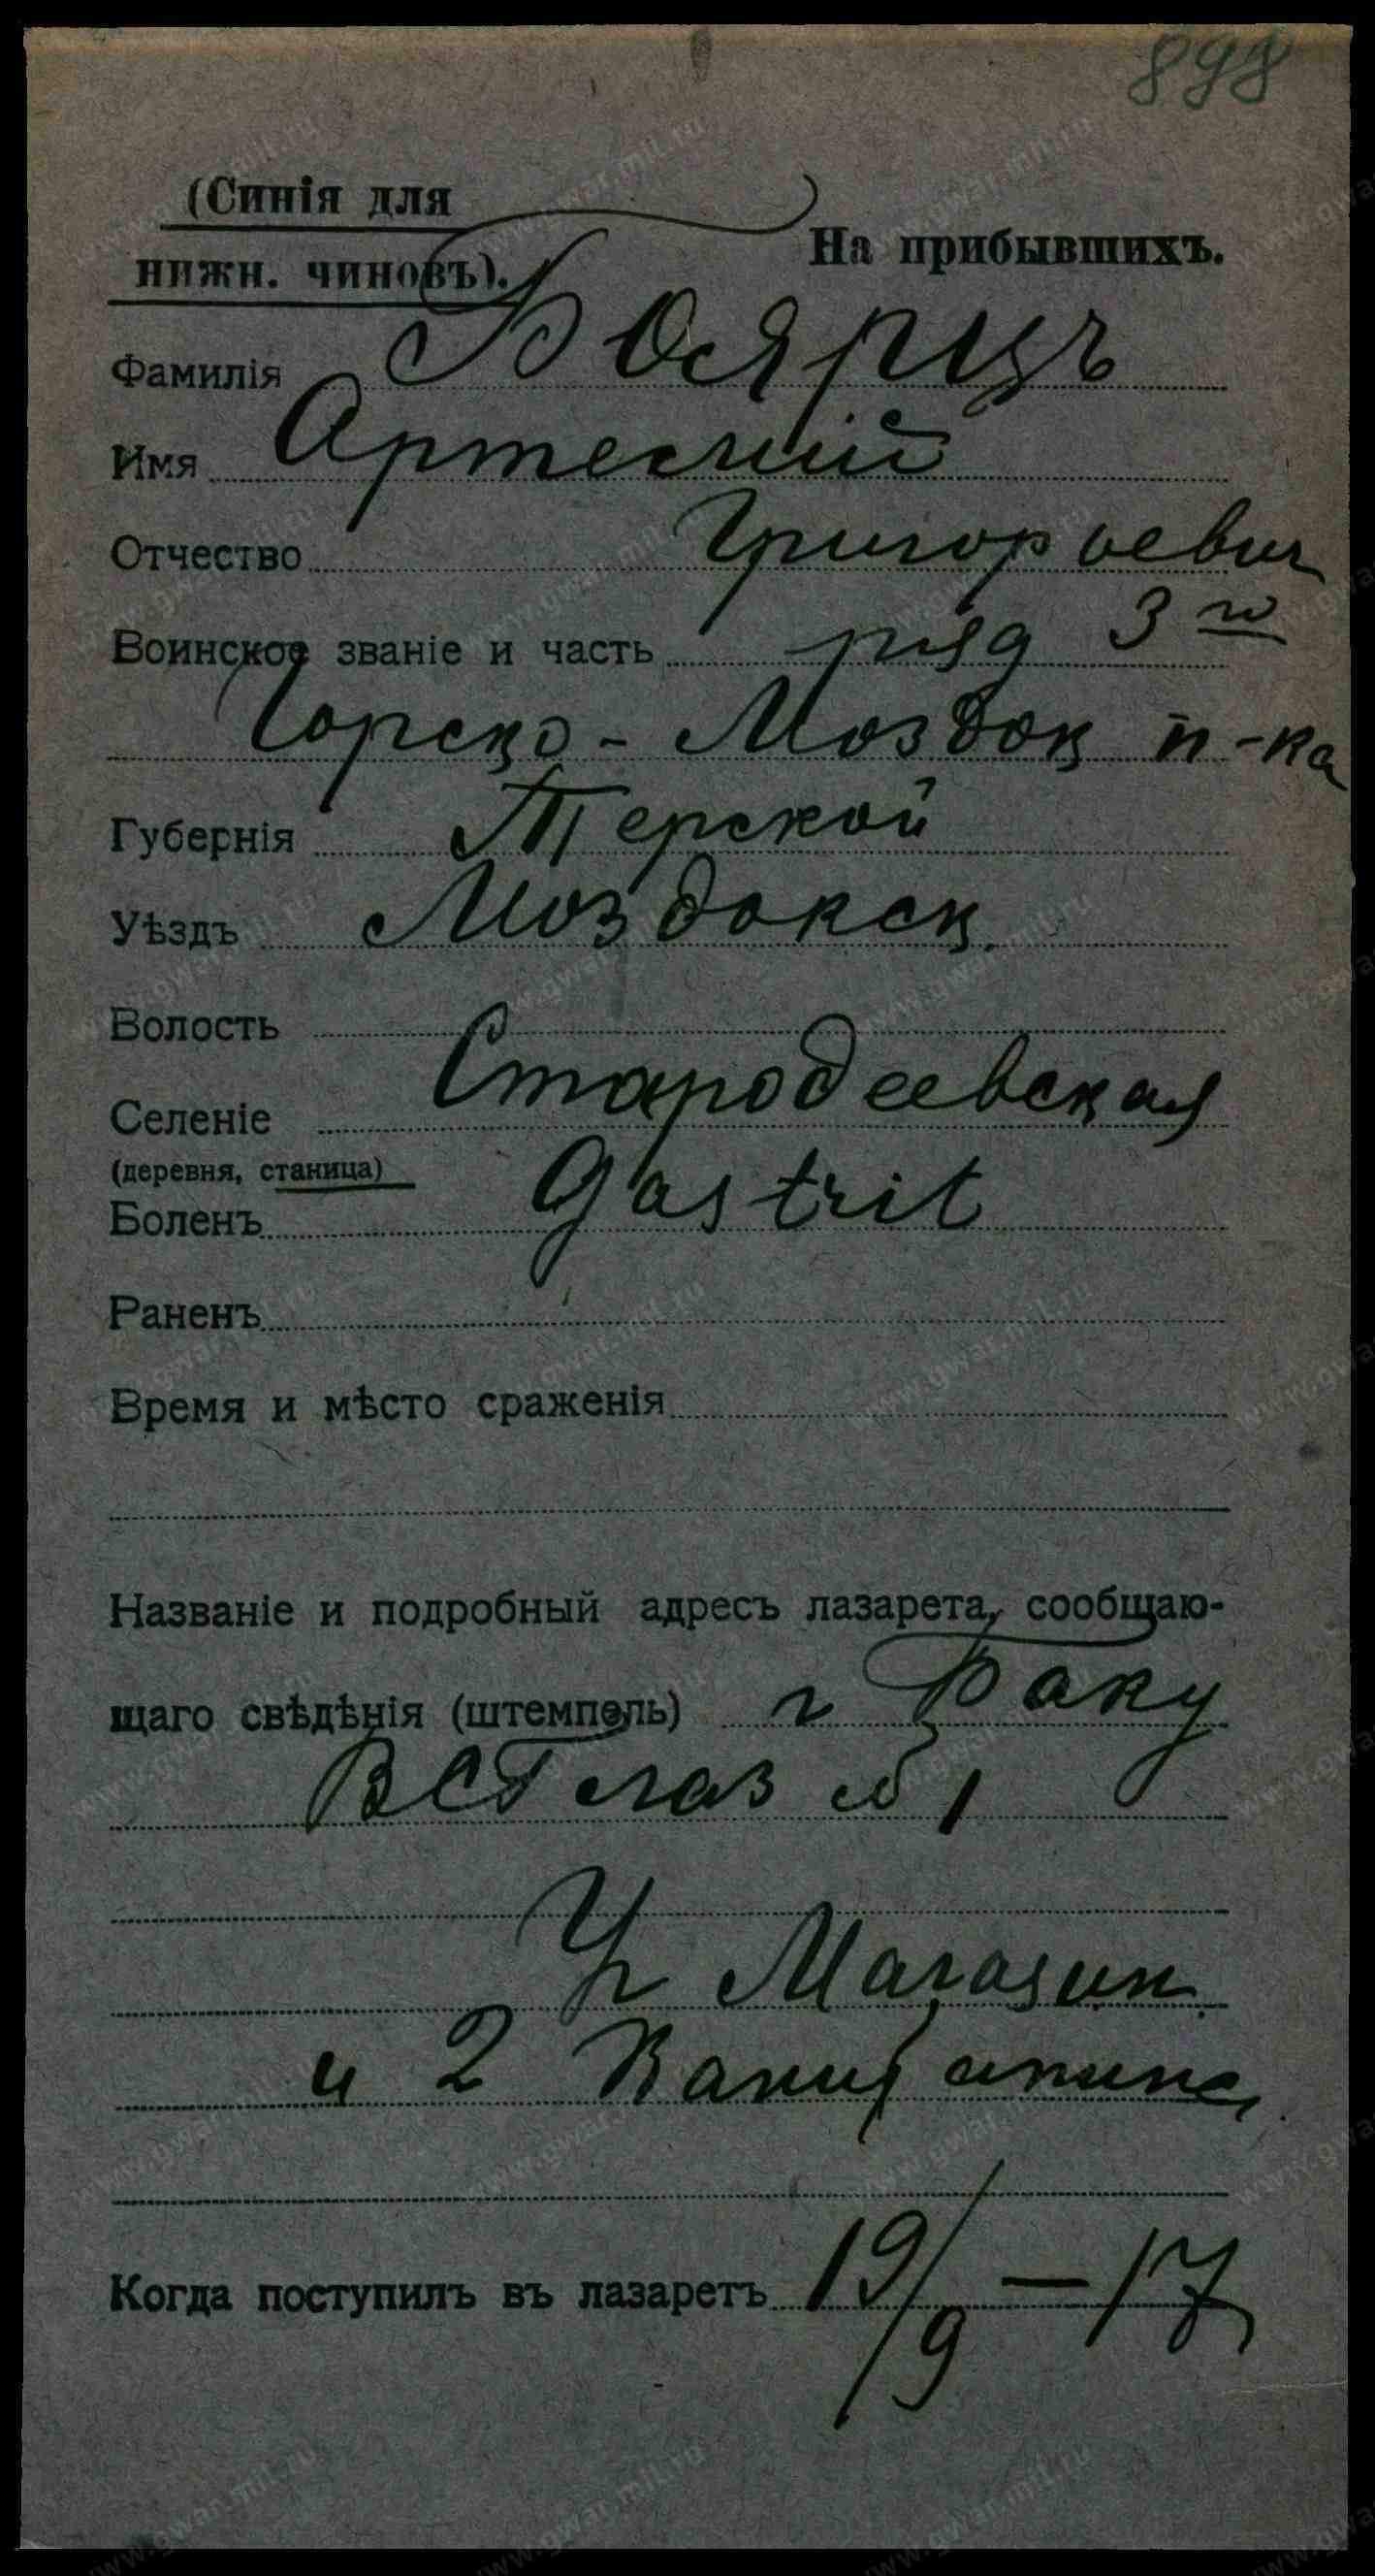 898
(Синія для
нижн. чиновъ).
На прибывшихъ.
Фамилія Боярцъ
Имя Артемій
Отчество Григорьевич
Воинское званіе и часть ряд 3го
Горско-Моздок п-ка
Губернія Терской
Уѣздъ Моздокск.
Волость
Селеніе Стародеевская
(деревня, станица)
Боленъ Gastrit
Раненъ
Время и мѣсто сраженія
Названіе и подробный адресъ лазарета, сообщаю-
щаго свѣдѣнія (штемпель) г Баку
ВСГ лаз № 1
Уг Магазин.
и 2
Когда поступилъ въ лазаретъ 19/9 - 17